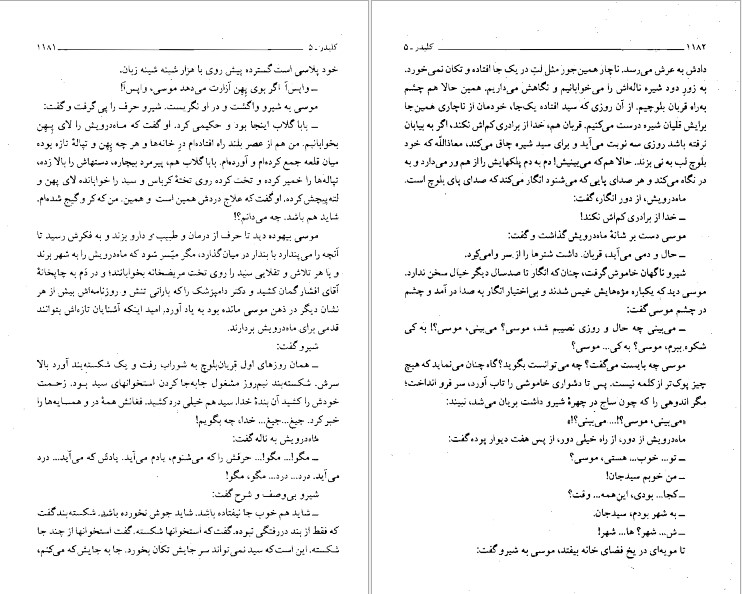 کلیدر ـ ۵ ۱۱۸۱
خود پلاسی است گسترده پیش روی با هزار شبنه شینه زبان.
ـ واپس! اگر بوی پِهِن آزارت می‌دهد موسی، واپس!
موسی به شیرو واگشت و در او نگریست. شیرو حرف را پی گرفت و گفت:
ـ بابا گلاب اینجا بود و حکیمی کرد. او گفت که ماه‌درویش را لای پِهِن
بخوابانیم. من هم از عصر بلند راه افتاده‌ام درِ خانه‌ها و هر چه پِهِن و تپالهٔ تازه بوده
میان قلعه جمع کرده‌ام و آورده‌ام. بابا گلاب هم، پیرمرد بیچاره، دستهاش را بالا زده،
تپاله‌ها را خمیر کرده و تخت کرده روی تختهٔ کرباس و سید را خوابانده لای پهن و
لته‌پیچش کرده. او گفت که علاج دردش همین است و همین. من که کر و گیج شده‌ام.
شاید هم باشد. چه می‌دانم؟!
موسی بیهوده دید تا حرف از درمان و طبیب و دارو بزند و به فکرش رسید تا
آنچه را می‌پندارد با بندار در میان گذارد، مگر میّسر شود که ماه‌درویش را به شهر برند
و یا هر تلاش و تقلایی سیّد را روی تخت مریضخانه بخوابانند؛ و در دَم به چاپخانهٔ
آقای افشار گمان کشید و دکتر دامپزشک را که بارانی تنش و روزنامه‌اش بیش از هر
نشان دیگر در ذهن موسی مانده بود به یاد آورد. امید اینکه آشنایان تازه‌اش بتوانند
قدمی برای ماه‌درویش بردارند.
شیرو گفت:
ـ همان روزهای اول قربان‌بلوچ به شوراب رفت و یک شکسته‌بند آورد بالا
سرش. شکسته‌بند نیم‌روز مشغول جابه‌جا کردن استخوانهای سید بود. زحمت
خودش را کشید آن بندهٔ خدا. سید هم خیلی درد کشید. فغانش همهٔ در و همسایه‌ها را
خبر کرد. جیغ...جیغ... خدا، چه بگویم!
ماه‌درویش به ناله گفت:
ـ مگو!... مگو!... حرفش را که می‌شنوم، یادم می‌آید. یادش که می‌آید... درد
می‌آید. درد... درد... مگو، مگو!
شیرو بی‌وصف و شرح گفت:
ـ شاید هم خوب جا نیفتاده باشد. شاید جوش نخورده باشد. شکسته‌بند گفت
که فقط از بند دررفتگی نبوده. گفت که استخوانها شکسته. گفت استخوانها از چند جا
شکسته. این است که سید نمی‌تواند سر جایش تکان بخورد. جا به جایش که می‌کنم،
۱۱۸۲ کلیدر ـ ۵
دادش به عرش می‌رسد. ناچار همین‌جور مثل لَت در یک جا افتاده و تکان نمی‌خورد.
به زور دود شیره ناله‌اش را می‌خوابانیم و نگاهش می‌داریم. همین حالا هم چشم
به‌راه قربان بلوچیم. از آن روزی که سید افتاده یک‌جا، خودمان از ناچاری همین‌جا
برایش قلیان شیره درست می‌کنیم. قربان هم، خدا از برادری کم‌اش نکند، اگر به بیابان
نرفته باشد روزی سه نوبت می‌آید و برای سید شیره چاق می‌کند، معاذاللّه که خود
بلوچ لب به نی بزند. حالا هم که می‌بینیش! دم به دم پلکهایش را از هم ور می‌دارد و به
در نگاه می‌کند و هر صدای پایی که می‌شنود انگار که صدای پای بلوچ است.
ماه‌درویش، از دور انگار، گفت:
ـ خدا از برادری کم‌اش نکند!
موسی دست بر شانهٔ ماه‌درویش گذاشت و گفت:
ـ حال و دمی می‌آید، قربان. داشت شترها را از سر وامی‌کرد.
شیرو ناگهان خاموش گرفت، چنان که انگار تا صدسال دیگر خیال سخن ندارد.
موسی دید که یکباره مژه‌هایش خیس شدند و بی‌اختیار انگار به صدا در آمد و چشم
در چشم موسی گفت:
ـ می‌بینی چه حال و روزی نصیبم شد، موسی؟ می‌بینی، موسی؟! به کی
شکوه ببرم، موسی؟ به کی... موسی؟
موسی چه بایست می‌گفت؟ چه می‌توانست بگوید؟ گاه چنان می‌نماید که هیچ
چیز پوک‌تر از کلمه نیست. پس تا دشواری خاموشی را تاب آورد، سر فرو انداخت؛
مگر اندوهی را که چون ساج در چهرهٔ شیرو داشت بریان می‌شد، نبیند:
«می‌بینی، موسی؟!... می‌بینی؟!»
ماه‌درویش از دور، از راه خیلی دور، از پس هفت دیوار پوده گفت:
ـ تو... خوب... هستی، موسی؟
ـ من خوبم سیدجان!
ـ کجا... بودی، این‌همه... وقت؟
ـ به شهر بودم، سیدجان.
ـ ش... شهر؟ ها... شهر!
تا مویه‌ای در یخ فضای خانه بیفتد، موسی به شیرو گفت: